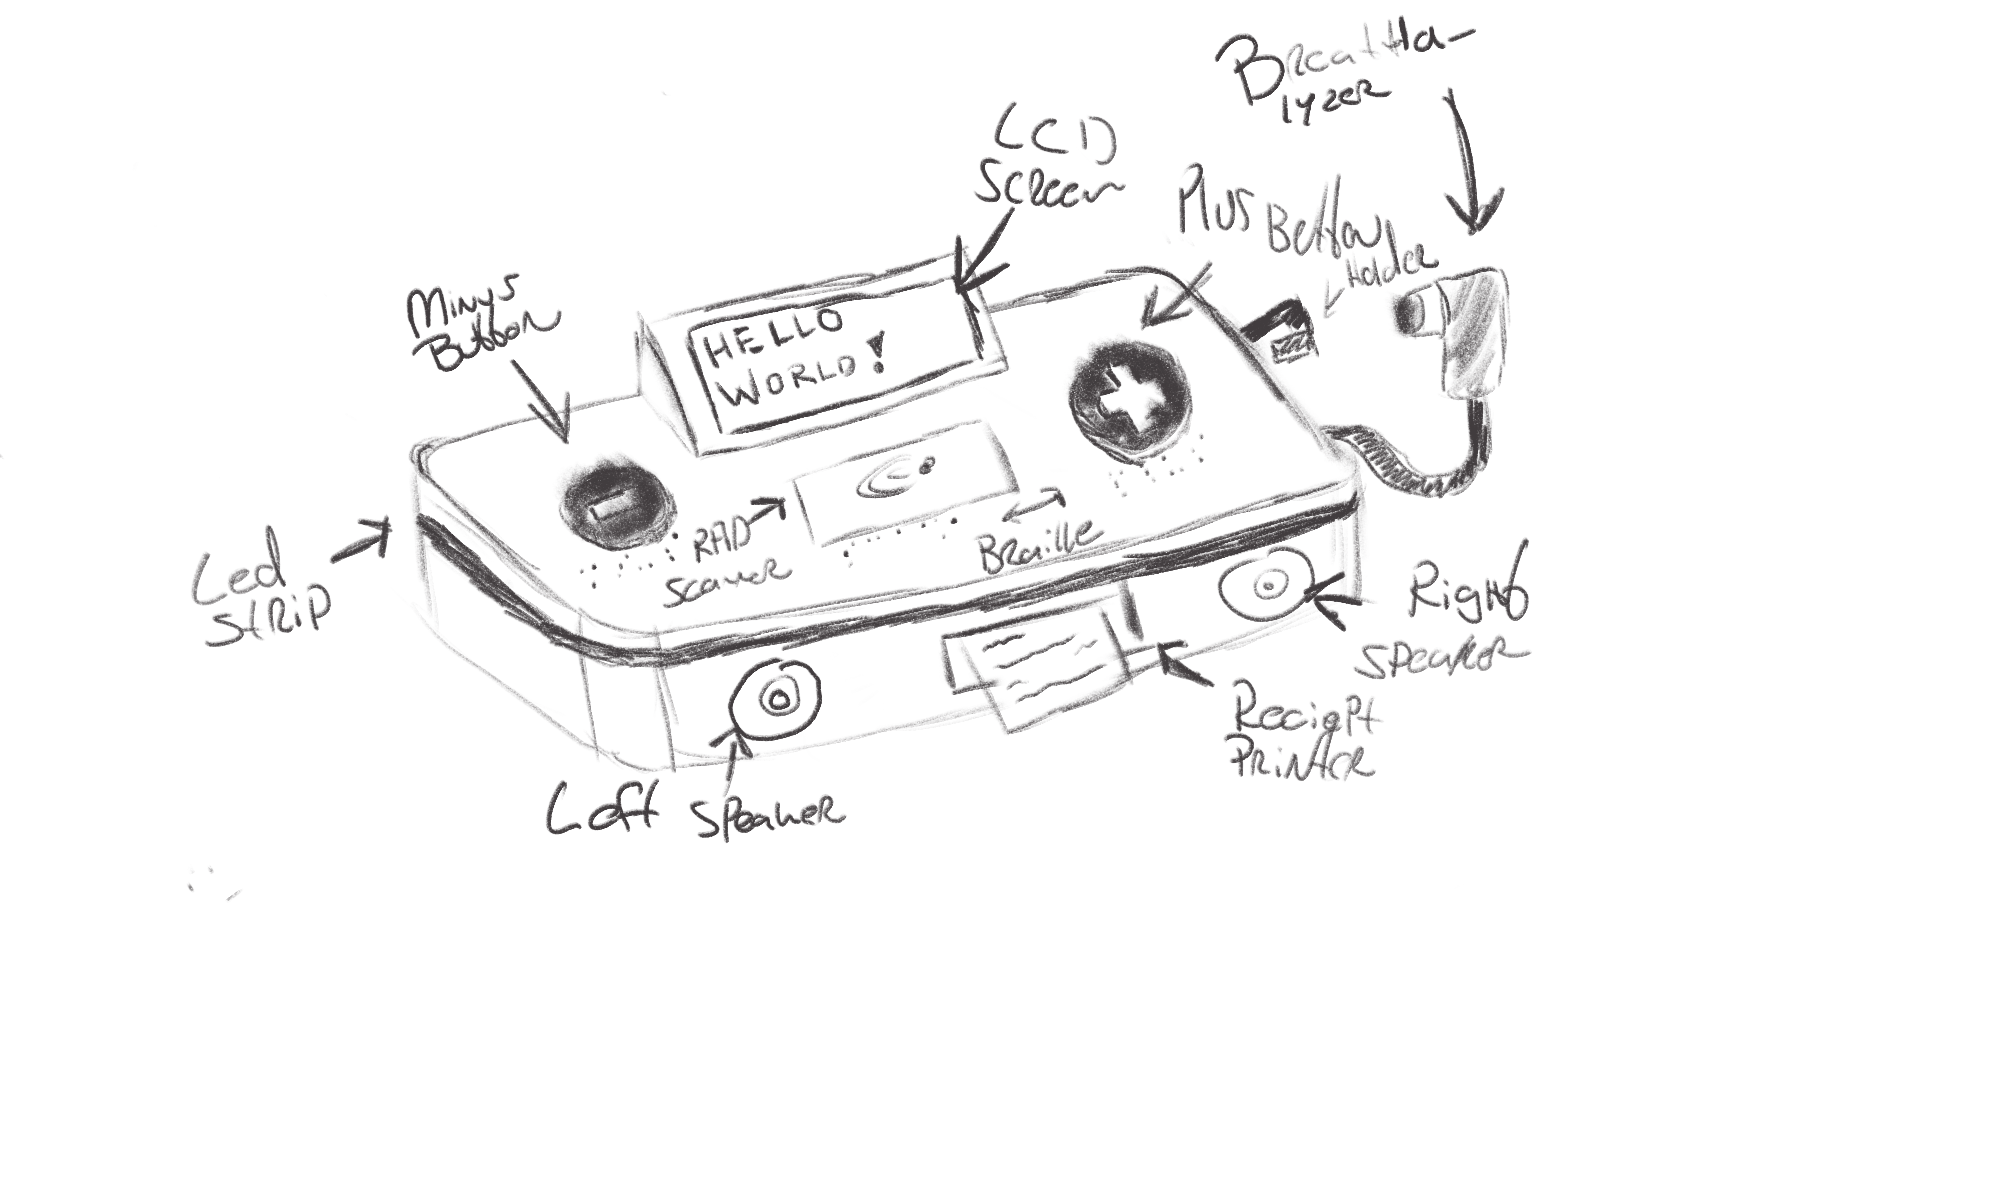 Breattha-
lyzer
LCD
Screen
Plus Button
Holder
Minus
Button
HELLO
WORLD!
RAID
Scanner
Braille
Led
Strip
Right
Speaker
Reciept
Printer
Left Speaker